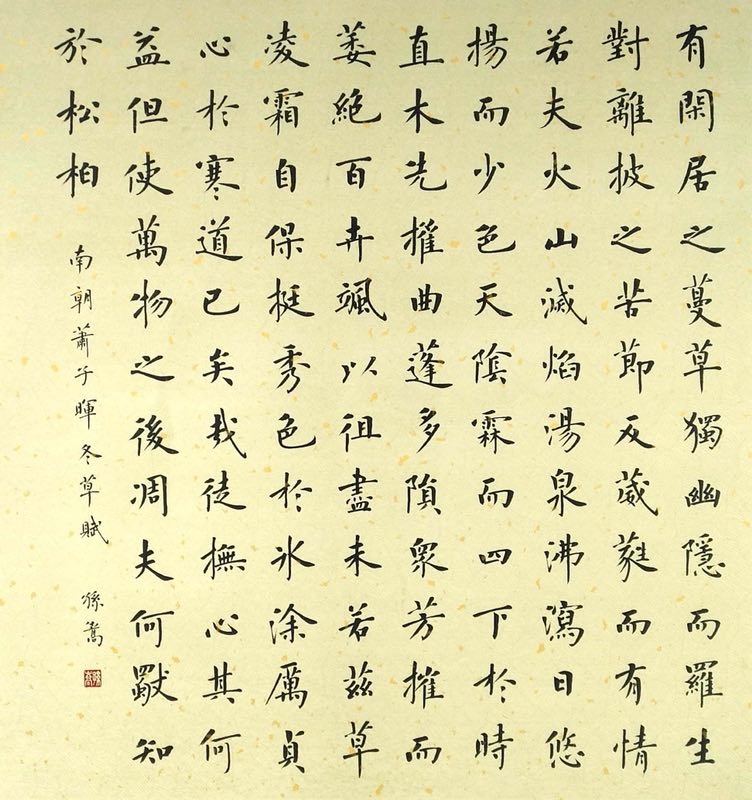 有閑居之蔓草獨幽隱而羅生
對離披之苦節反葳蕤而有情
若夫火山滅焰湯泉沸瀉日悠
揚而少色天陰霖而四下於時
直木先摧曲蓬多隕眾芳摧而
萎絕百卉颯以徂盡未若茲草
凌霜自保挺秀色於冰涂厲貞
心於寒道已矣哉徒撫心其何
益但使萬物之後凋夫何獸知
於松柏
南朝蕭子暉冬草賦
孫嵩